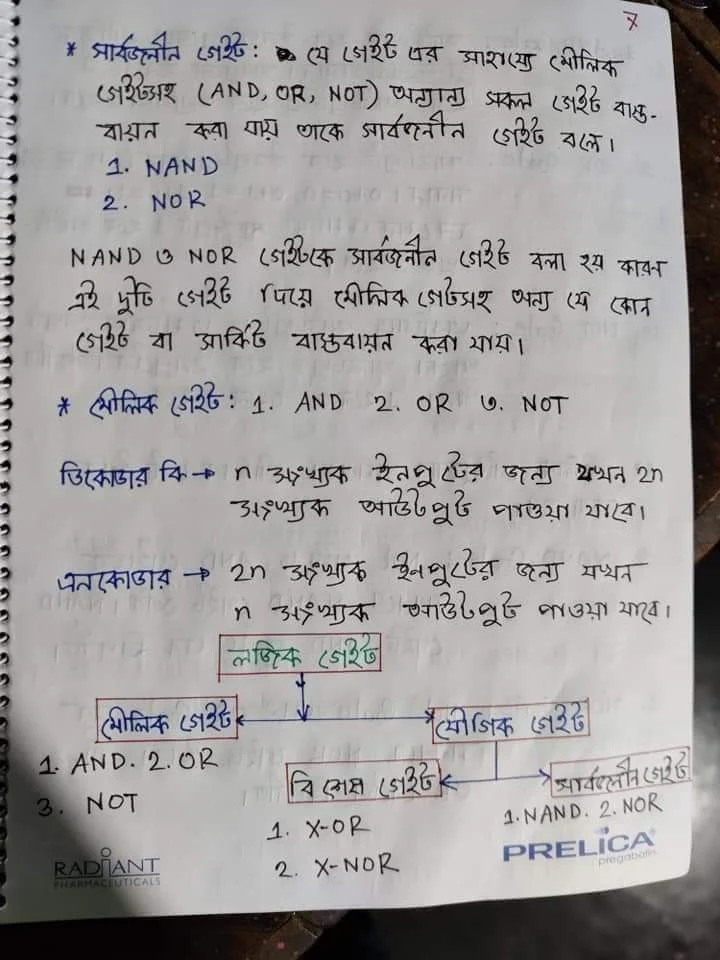 7
* সার্বজনীন গেইট: যে গেইট এর সাহায্যে মৌলিক
গেইটসহ (AND, OR, NOT) অন্যান্য সকল গেইট বাস্ত-
বায়ন করা যায় তাকে সার্বজনীন গেইট বলে।
1. NAND
2. NOR
NAND ও NOR গেইটকে সার্বজনীন গেইট বলা হয় কারণ
এই দুটি গেইট দিয়ে মৌলিক গেটসহ অন্য যে কোন
গেইট বা সার্কিট বাস্তবায়ন করা যায়।
* মৌলিক গেইট: 1. AND 2. OR ৩. NOT
ডিকোডার কি → n সংখ্যক ইনপুটের জন্য যখন 2n
সংখ্যক আউটপুট পাওয়া যাবে।
এনকোডার → 2n সংখ্যক ইনপুটের জন্য যখন
n সংখ্যক আউটপুট পাওয়া যাবে।
লজিক গেইট
মৌলিক গেইট যৌগিক গেইট
1. AND. 2. OR
3. NOT
বিশেষ গেইট সার্বজনীন গেইট
1. X-OR
2. X-NOR
1. NAND. 2. NOR
RADIANT
PHARMACEUTICALS
PRELICA
pregabalin